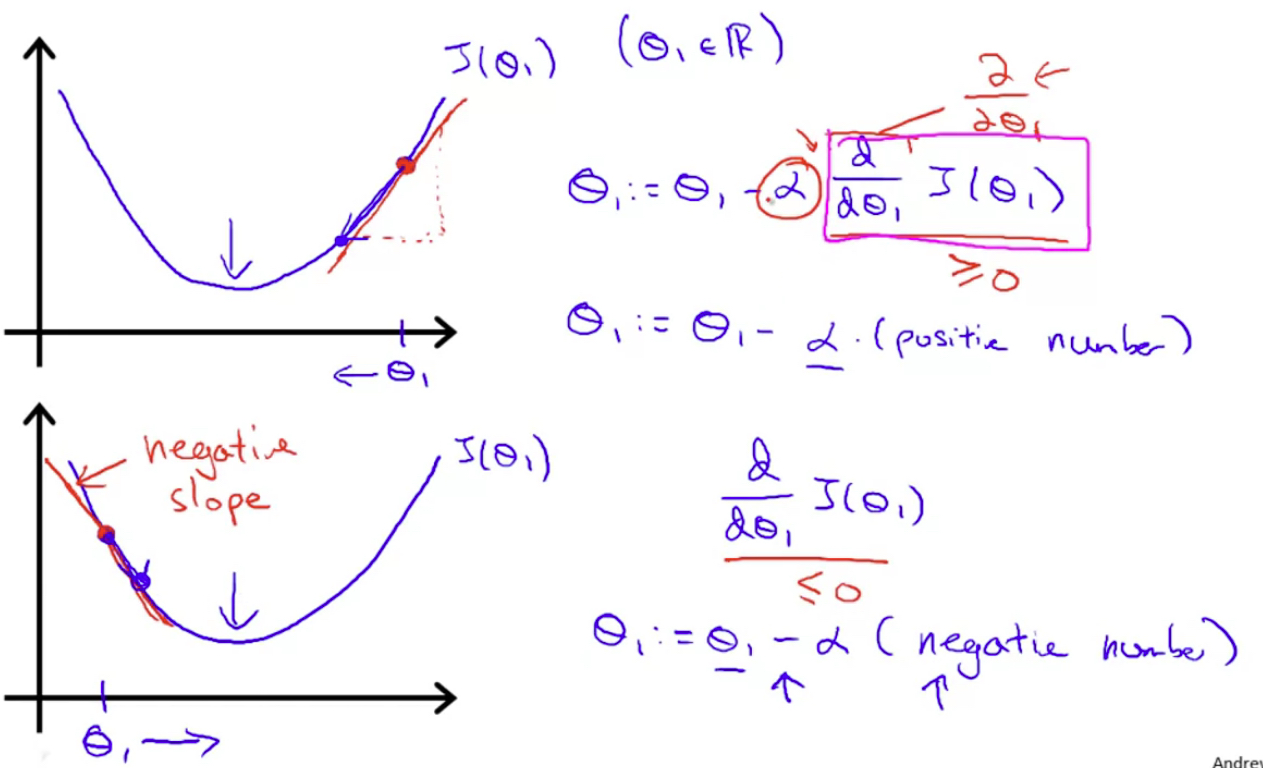 J(θ₁) (θ₁ ∈ ℝ)
∂
∂θ₁
θ₁ := θ₁ - α d/dθ₁ J(θ₁)
≥ 0
θ₁ := θ₁ - α · (positive number)
← θ₁
negative
slope
J(θ₁)
d/dθ₁ J(θ₁)
≤ 0
θ₁ := θ₁ - α (negative number)
θ₁ →
Andrew